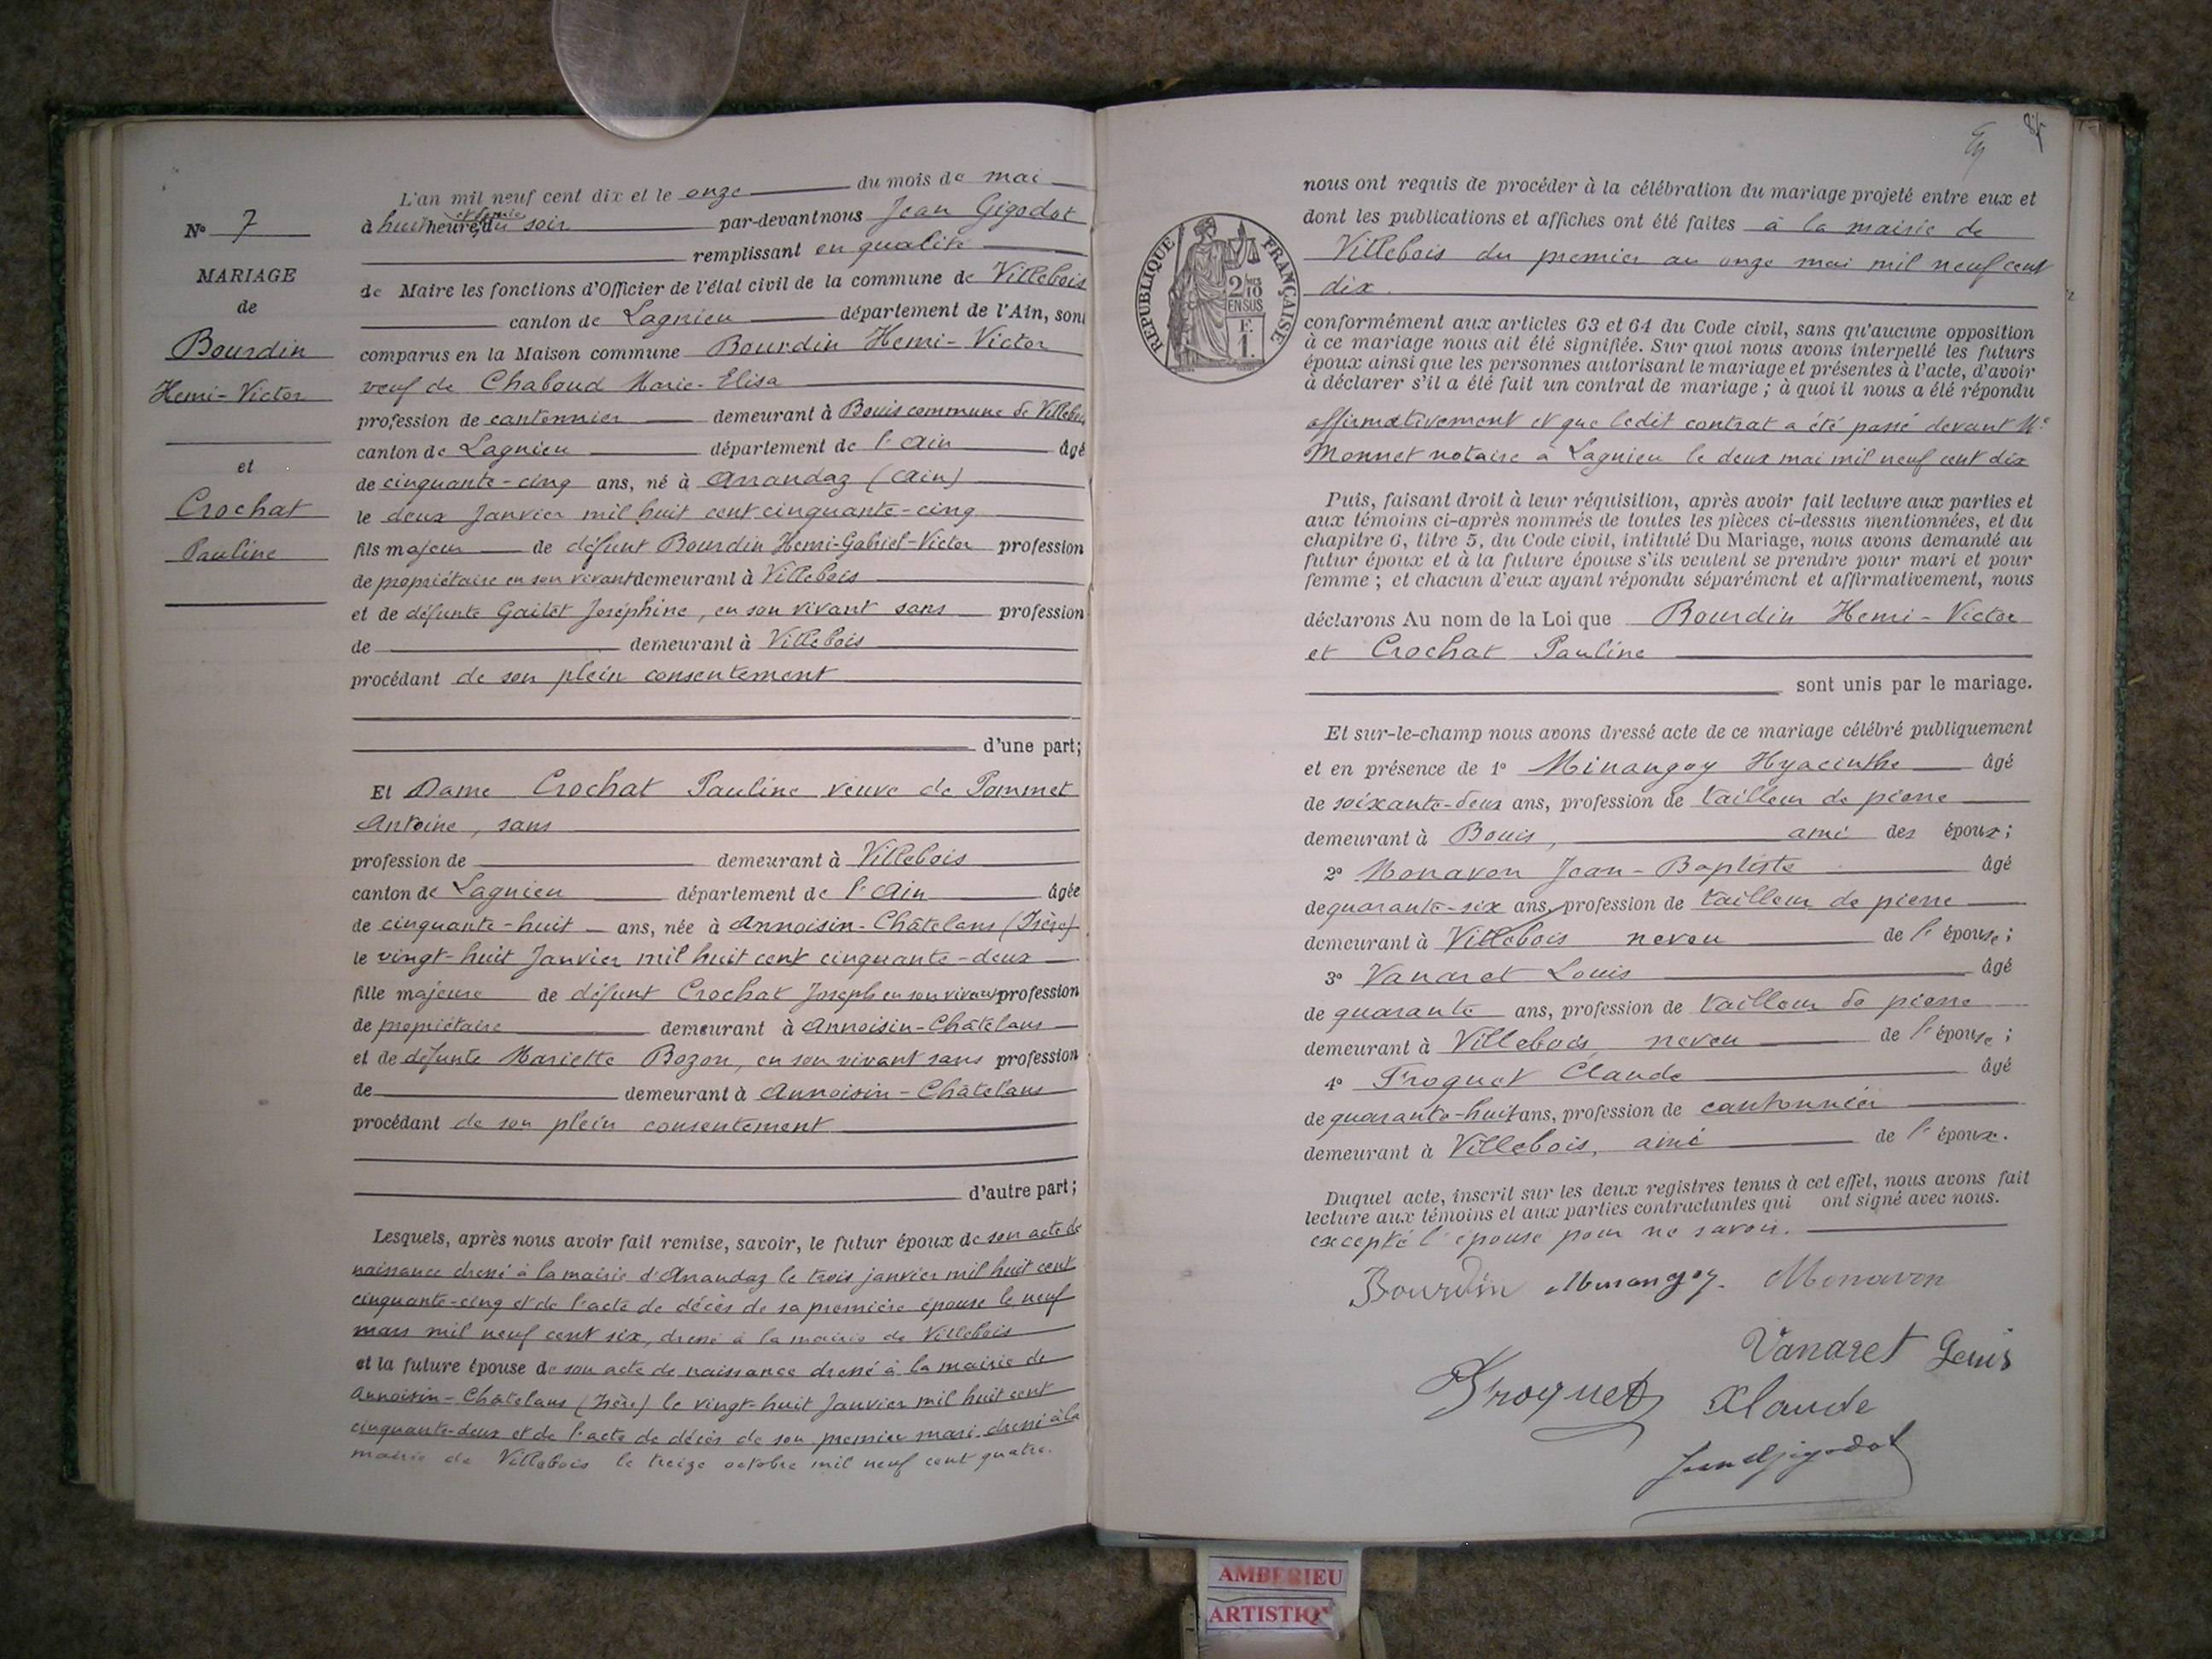 N° 7
MARIAGE
de
Bourdin
Henri-Victor
et
Crochat
Pauline
L'an mil neuf cent dix et le onze du mois de mai
à huit heures et demie du soir par-devant nous Jean Gigodot
remplissant en qualité
de Maire les fonctions d'Officier de l'état civil de la commune de Villebois
canton de Lagnieu département de l'Ain, sont
comparus en la Maison commune Bourdin Henri-Victor
veuf de Chaboud Marie-Elisa
profession de cantonnier demeurant à Bouis commune de Villebois
canton de Lagnieu département de l'Ain âgé
de cinquante-cinq ans, né à Arandaz (Ain)
le deux Janvier mil huit cent cinquante-cinq
fils majeur de défunt Bourdin Henri-Gabriel-Victor profession
de propriétaire en son vivant demeurant à Villebois
et de défunte Gailet Joséphine, en son vivant sans profession
de demeurant à Villebois
procédant de son plein consentement
d'une part;
Et Dame Crochat Pauline veuve de Pommet
Antoine, sans
profession de demeurant à Villebois
canton de Lagnieu département de l'Ain âgée
de cinquante-huit ans, née à Annoisin-Châtelans (Isère)
le vingt-huit Janvier mil huit cent cinquante-deux
fille majeure de défunt Crochat Joseph en son vivant profession
de propriétaire demeurant à Annoisin-Châtelans
et de défunte Mariette Bozon, en son vivant sans profession
de demeurant à Annoisin-Châtelans
procédant de son plein consentement
d'autre part;
Lesquels, après nous avoir fait remise, savoir, le futur époux de son acte de
naissance dressé à la mairie d'Arandaz le trois janvier mil huit cent
cinquante-cinq et de l'acte de décès de sa première épouse le neuf
mars mil neuf cent six, dressé à la mairie de Villebois
et la future épouse de son acte de naissance dressé à la mairie de
Annoisin-Châtelans (Isère) le vingt-huit Janvier mil huit cent
cinquante-deux et de l'acte de décès de son premier mari dressé à la
mairie de Villebois le treize octobre mil neuf cent quatre.
REPUBLIQUE FRANÇAISE
2/10
EN SUS
F.
1.
nous ont requis de procéder à la célébration du mariage projeté entre eux et
dont les publications et affiches ont été faites à la mairie de
Villebois du premier au onze mai mil neuf cent
dix.
conformément aux articles 63 et 64 du Code civil, sans qu'aucune opposition
à ce mariage nous ait été signifiée. Sur quoi nous avons interpellé les futurs
époux ainsi que les personnes autorisant le mariage et présentes à l'acte, d'avoir
à déclarer s'il a été fait un contrat de mariage ; à quoi il nous a été répondu
affirmativement et que ledit contrat a été passé devant Me
Monnet notaire à Lagnieu le deux mai mil neuf cent dix
Puis, faisant droit à leur réquisition, après avoir fait lecture aux parties et
aux témoins ci-après nommés de toutes les pièces ci-dessus mentionnées, et du
chapitre 6, titre 5, du Code civil, intitulé Du Mariage, nous avons demandé au
futur époux et à la future épouse s'ils veulent se prendre pour mari et pour
femme ; et chacun d'eux ayant répondu séparément et affirmativement, nous
déclarons Au nom de la Loi que Bourdin Henri-Victor
et Crochat Pauline
sont unis par le mariage.
Et sur-le-champ nous avons dressé acte de ce mariage célébré publiquement
et en présence de 1° Minangoy Hyacinthe âgé
de soixante-deux ans, profession de tailleur de pierre
demeurant à Bouis, ami des époux;
2° Monavon Jean-Baptiste âgé
de quarante-six ans, profession de tailleur de pierre
demeurant à Villebois neveu de l'épouse;
3° Vanaret Louis âgé
de quarante ans, profession de tailleur de pierre
demeurant à Villebois neveu de l'épouse;
4° Troquet Claude âgé
de quarante-huit ans, profession de cantonnier
demeurant à Villebois, ami de l'époux.
Duquel acte, inscrit sur les deux registres tenus à cet effet, nous avons fait
lecture aux témoins et aux parties contractantes qui ont signé avec nous.
excepté l'épouse pour ne savoir.
Bourdin Minangoy. Monavon
Vanaret Louis
Troquet Claude
Jean Gigodot
AMBERIEU
ARTISTIQ